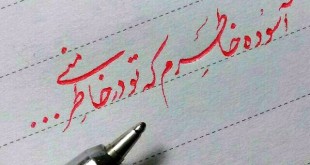 آسوده خاطرم که تو در خاطر منی ...